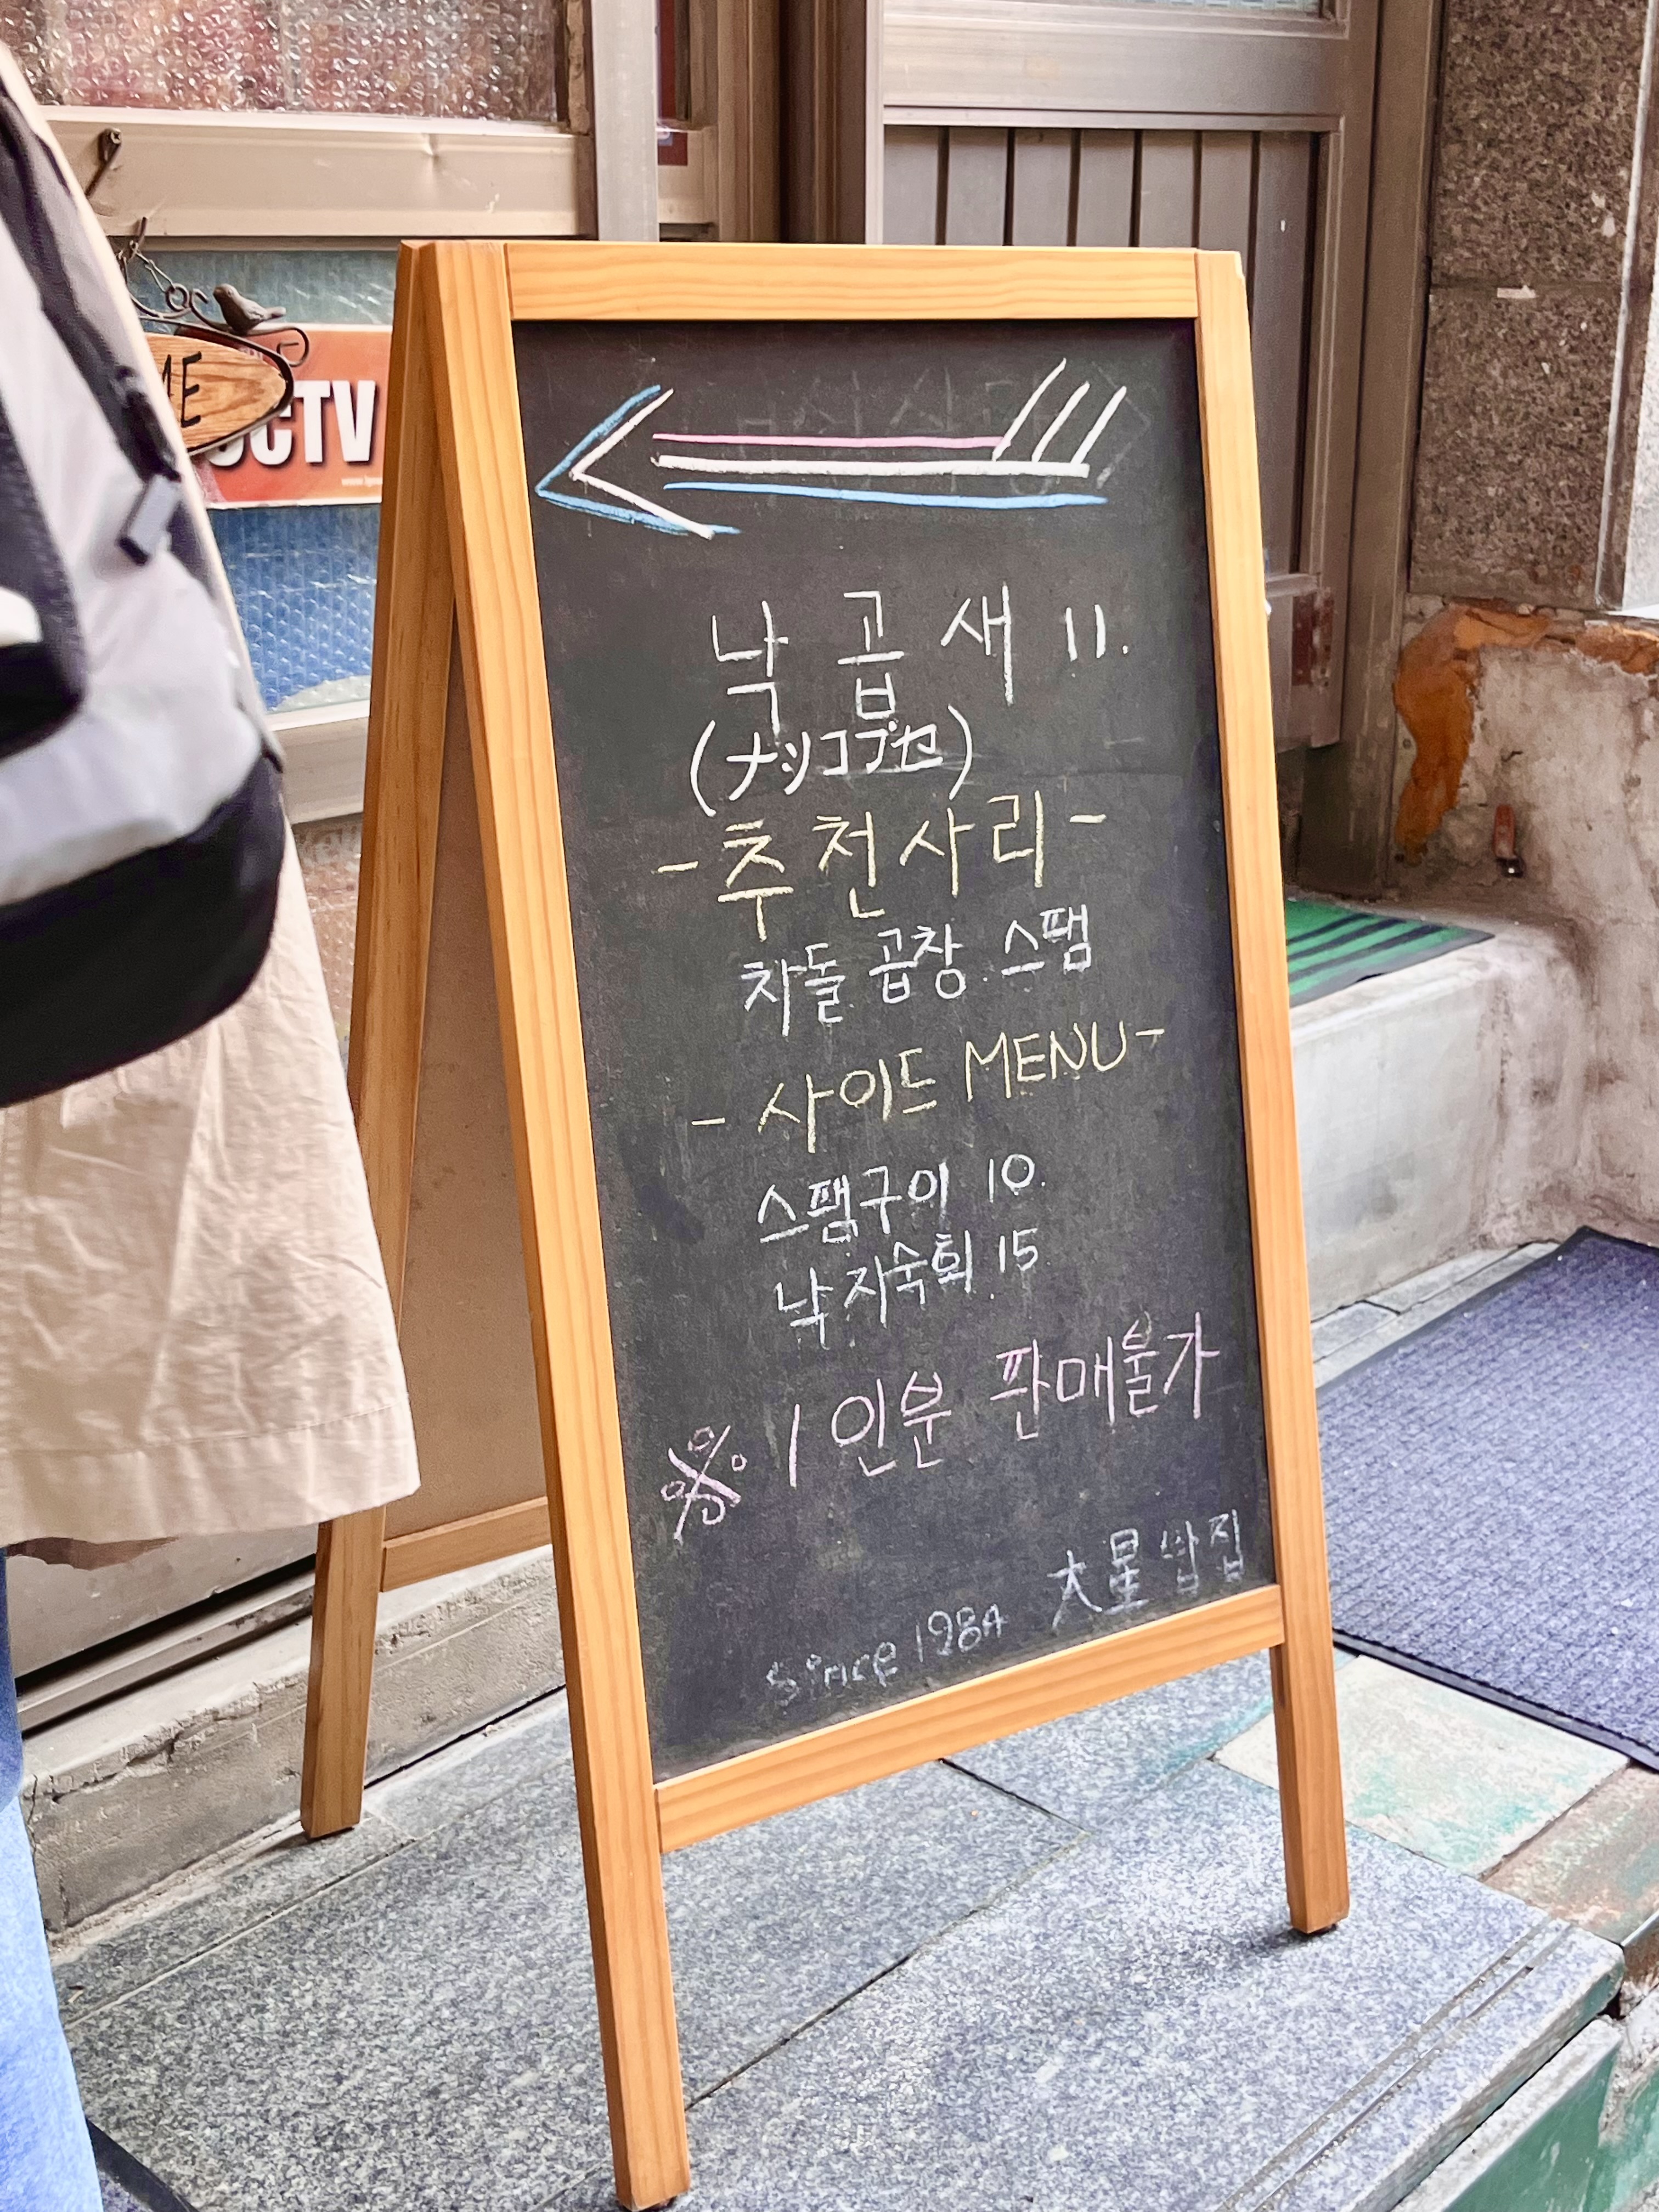 낙곱새 11.
(ナッコプセ)
-추천사리-
차돌 곱창 스팸
-사이드 MENU-
스팸구이 10.
낙지숙회 15
※ 1인분 판매불가
大星 밥집
since 1984
CCTV
ME